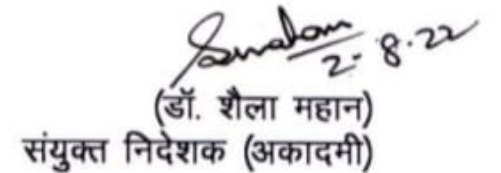 2-8-22
(डॉ. शैला महान)
संयुक्त निदेशक (अकादमी)